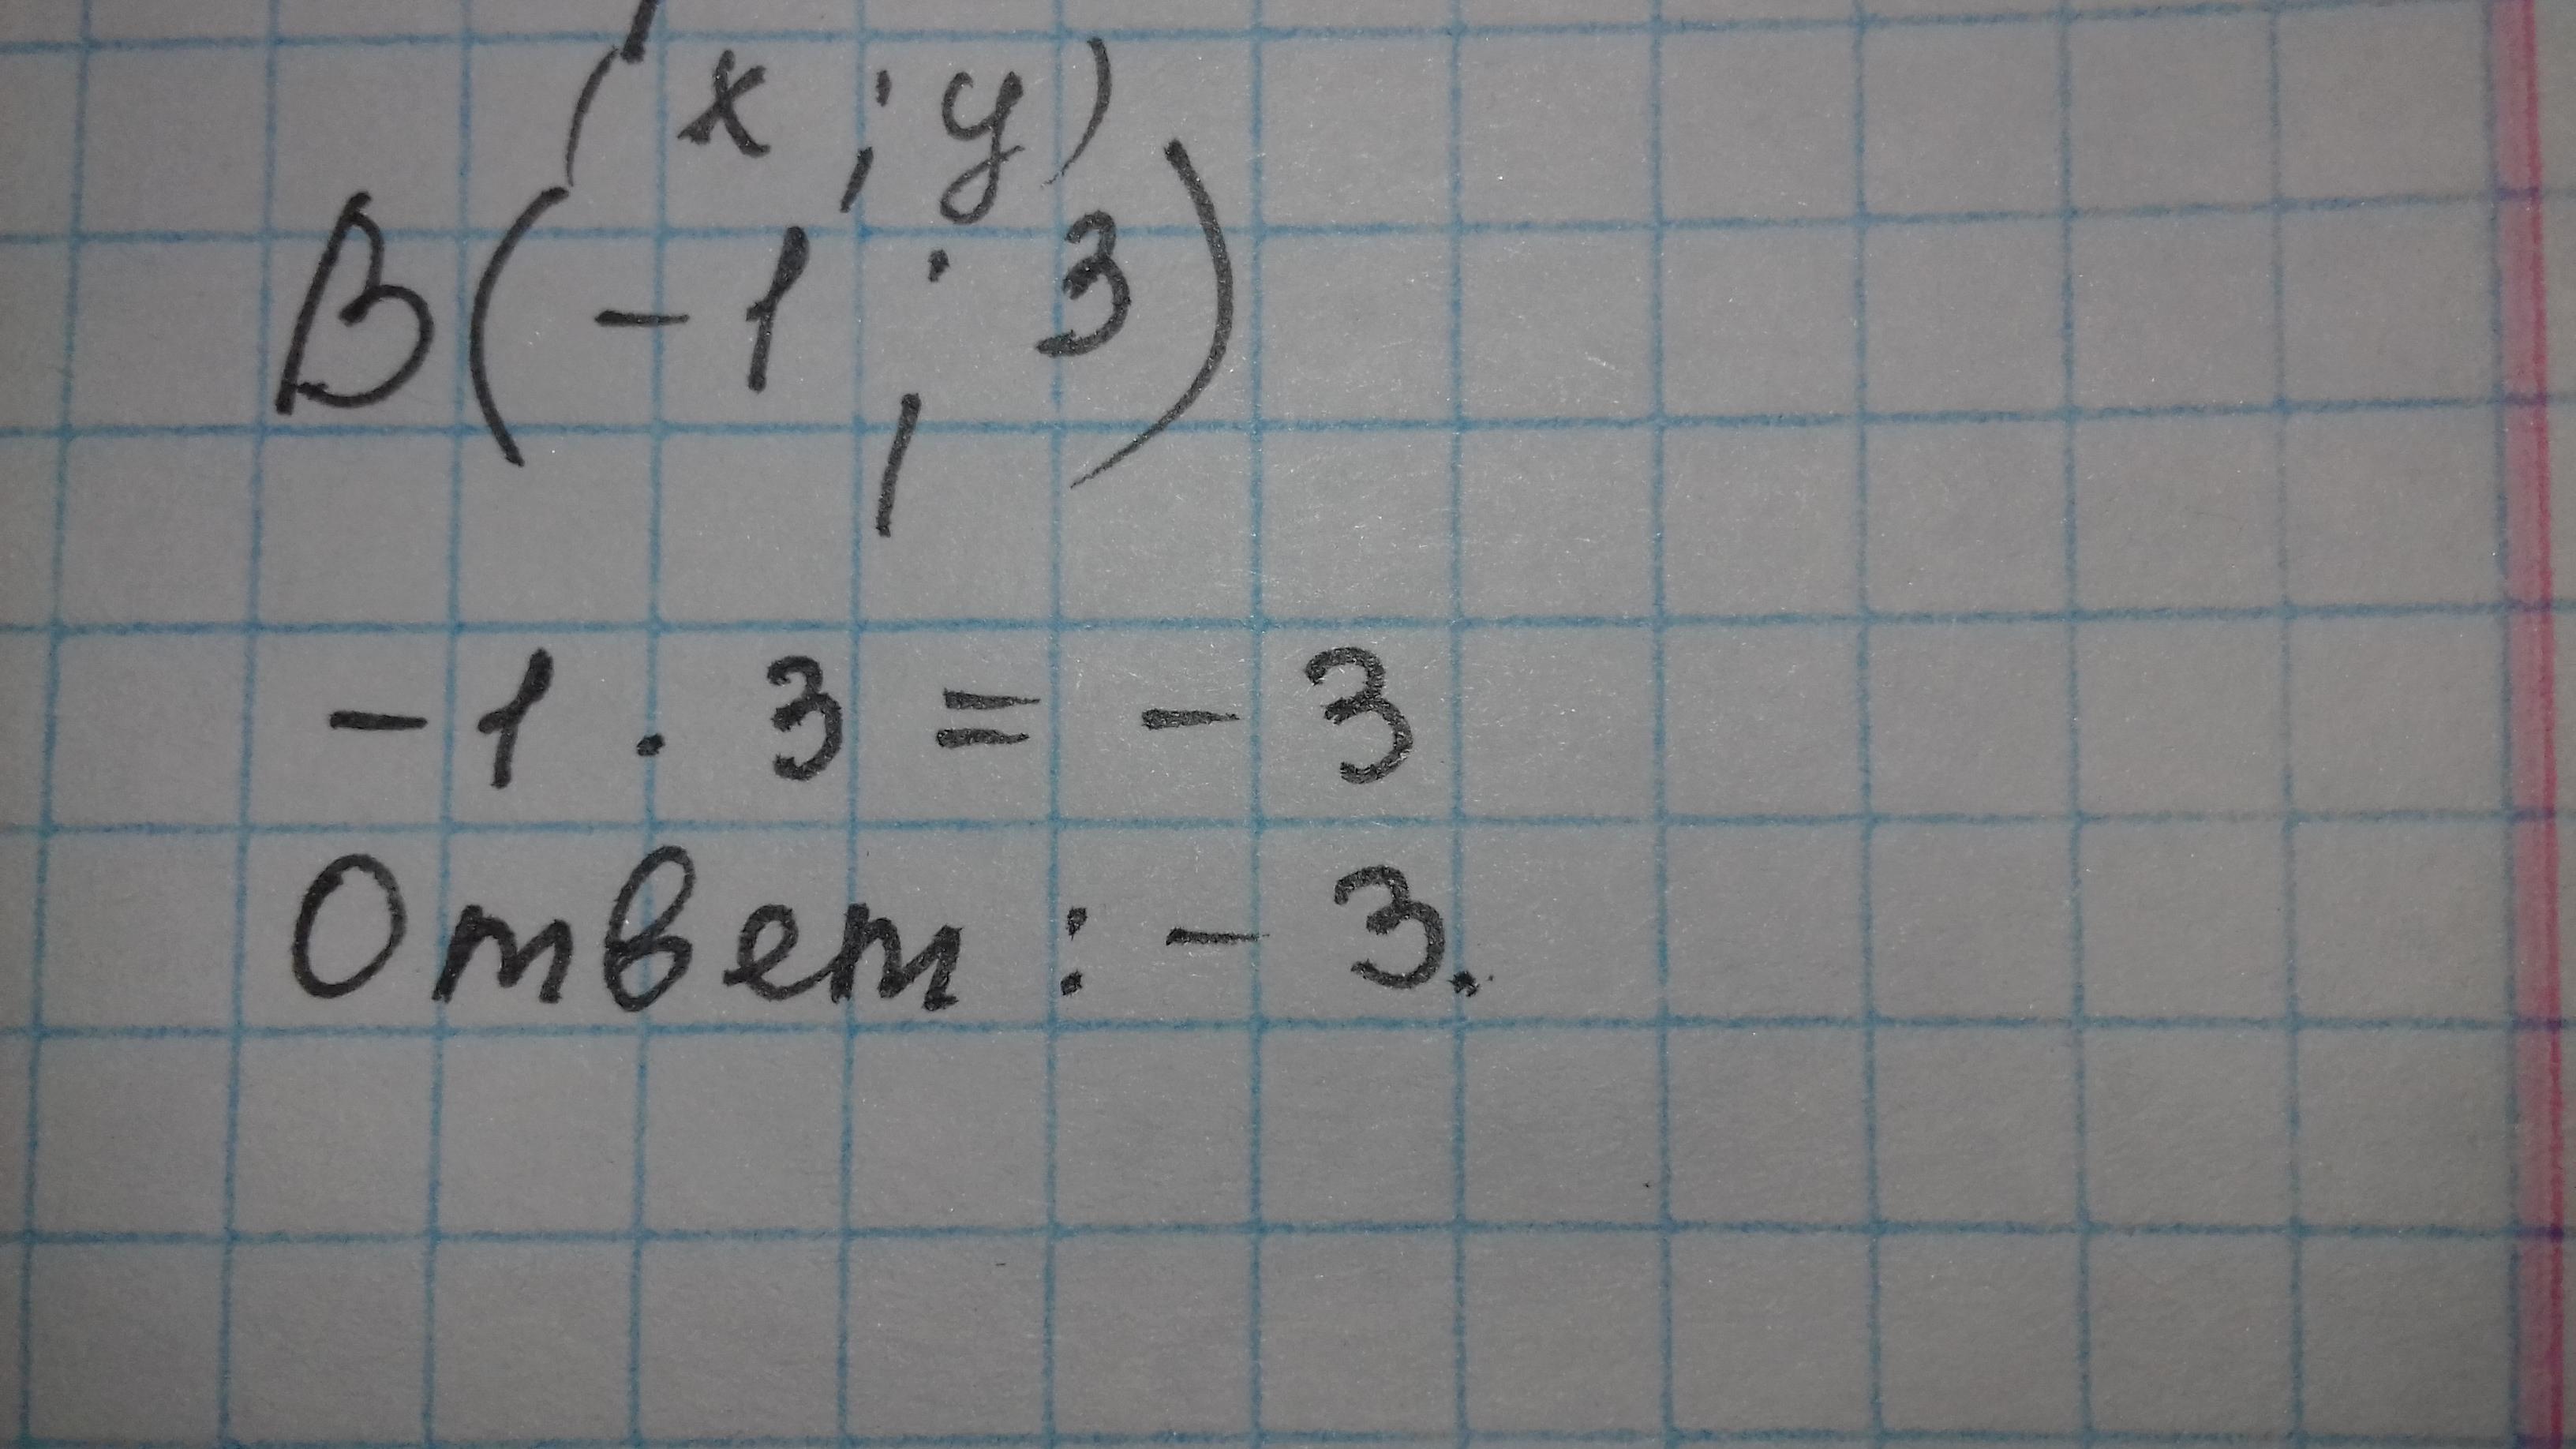 (x ; y)
В(-1 ; 3)
-1 · 3 = - 3
Ответ : - 3.